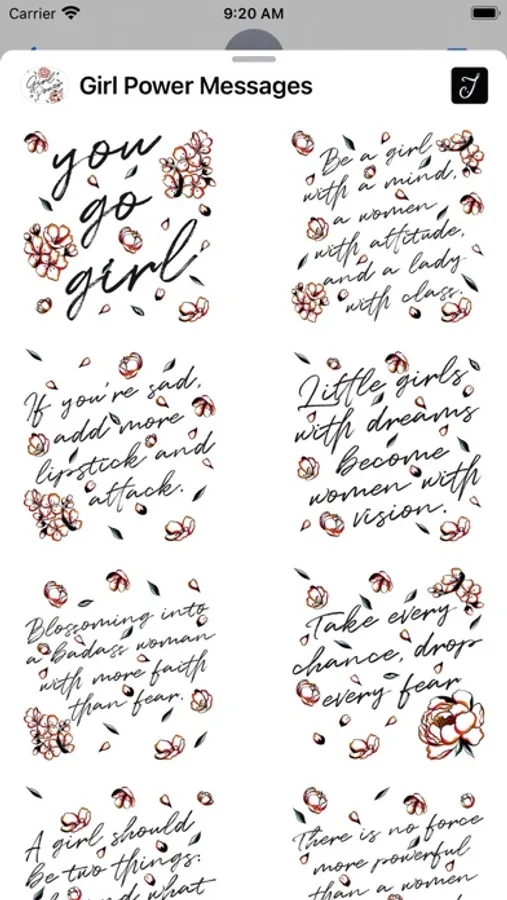 Carrier 9:20 AM
Girl Power Messages
Girl
Power
you
go
girl
Be a girl
with a mind,
a women
with attitude,
and a lady
with class.
If you're sad,
add more
lipstick and
attack.
Little girls
with dreams
become
women with
vision.
Blossoming into
a badass woman
with more faith
than fear.
Take every
chance, drop
every fear
A girl should
be two things:
and what
There is no force
more powerful
than a women